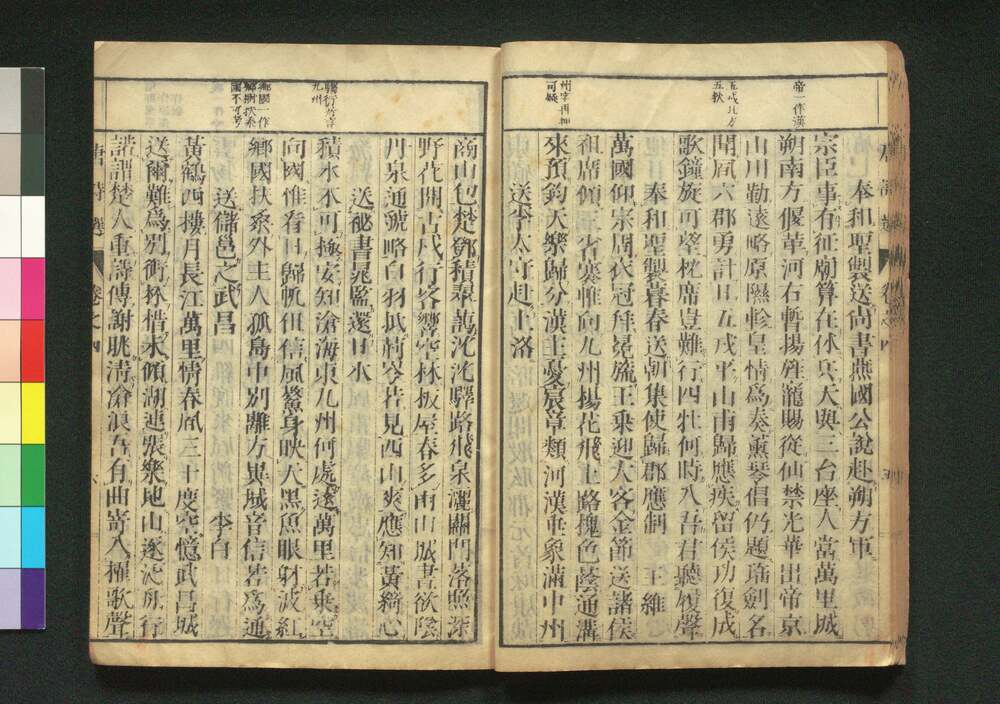 帝一作漢
五戎北方
五狄
州字再押
可疑
奉和聖製送尚書燕國公說赴朔方軍
宗臣事有征廟算在休兵天與三台座人當萬里城
朔南方偃革河右暫揚旌寵賜從仙禁光華出帝京
山川勤遠略原隰軫皇情爲奏薰琴倡仍題瑤劍名
聞風六郡勇計日五戎平山甫歸應疾留侯功復成
歌鐘旋可望枕席豈難行四牡何時入吾君聽履聲
奉和聖製暮春送朝集使歸郡應制 王維
萬國仰宗周衣冠拜冕旒玉乘迎大客金節送諸侯
祖席傾三省褰帷向九州楊花飛上路槐色蔭通溝
來預鈞天樂歸分漢主憂宸章類河漢垂象滿中州
送李太守赴上洛
九州
鄉國一作
商山包楚鄧積翠藹沈沈驛路飛泉灑關門落照深
野花開古戍行客響空林板屋春多雨山城晝欲陰
丹泉通虢略白羽抵荊岑若見西山爽應知黃綺心
送祕書晁監還日本
積水不可極安知滄海東九州何處遠萬里若乘空
向國惟看日歸帆但信風鰲身映天黑魚眼射波紅
鄉國扶桑外主人孤島中別離方異域音信若爲通
送儲邕之武昌 李白
黃鶴西樓月長江萬里情春風三十度空憶武昌城
送爾難爲別銜杯惜未傾湖連張樂地山逐泛舟行
諾謂楚人重詩傳謝朓清滄浪吾有曲寄入櫂歌聲
唐詩選 卷之四 六